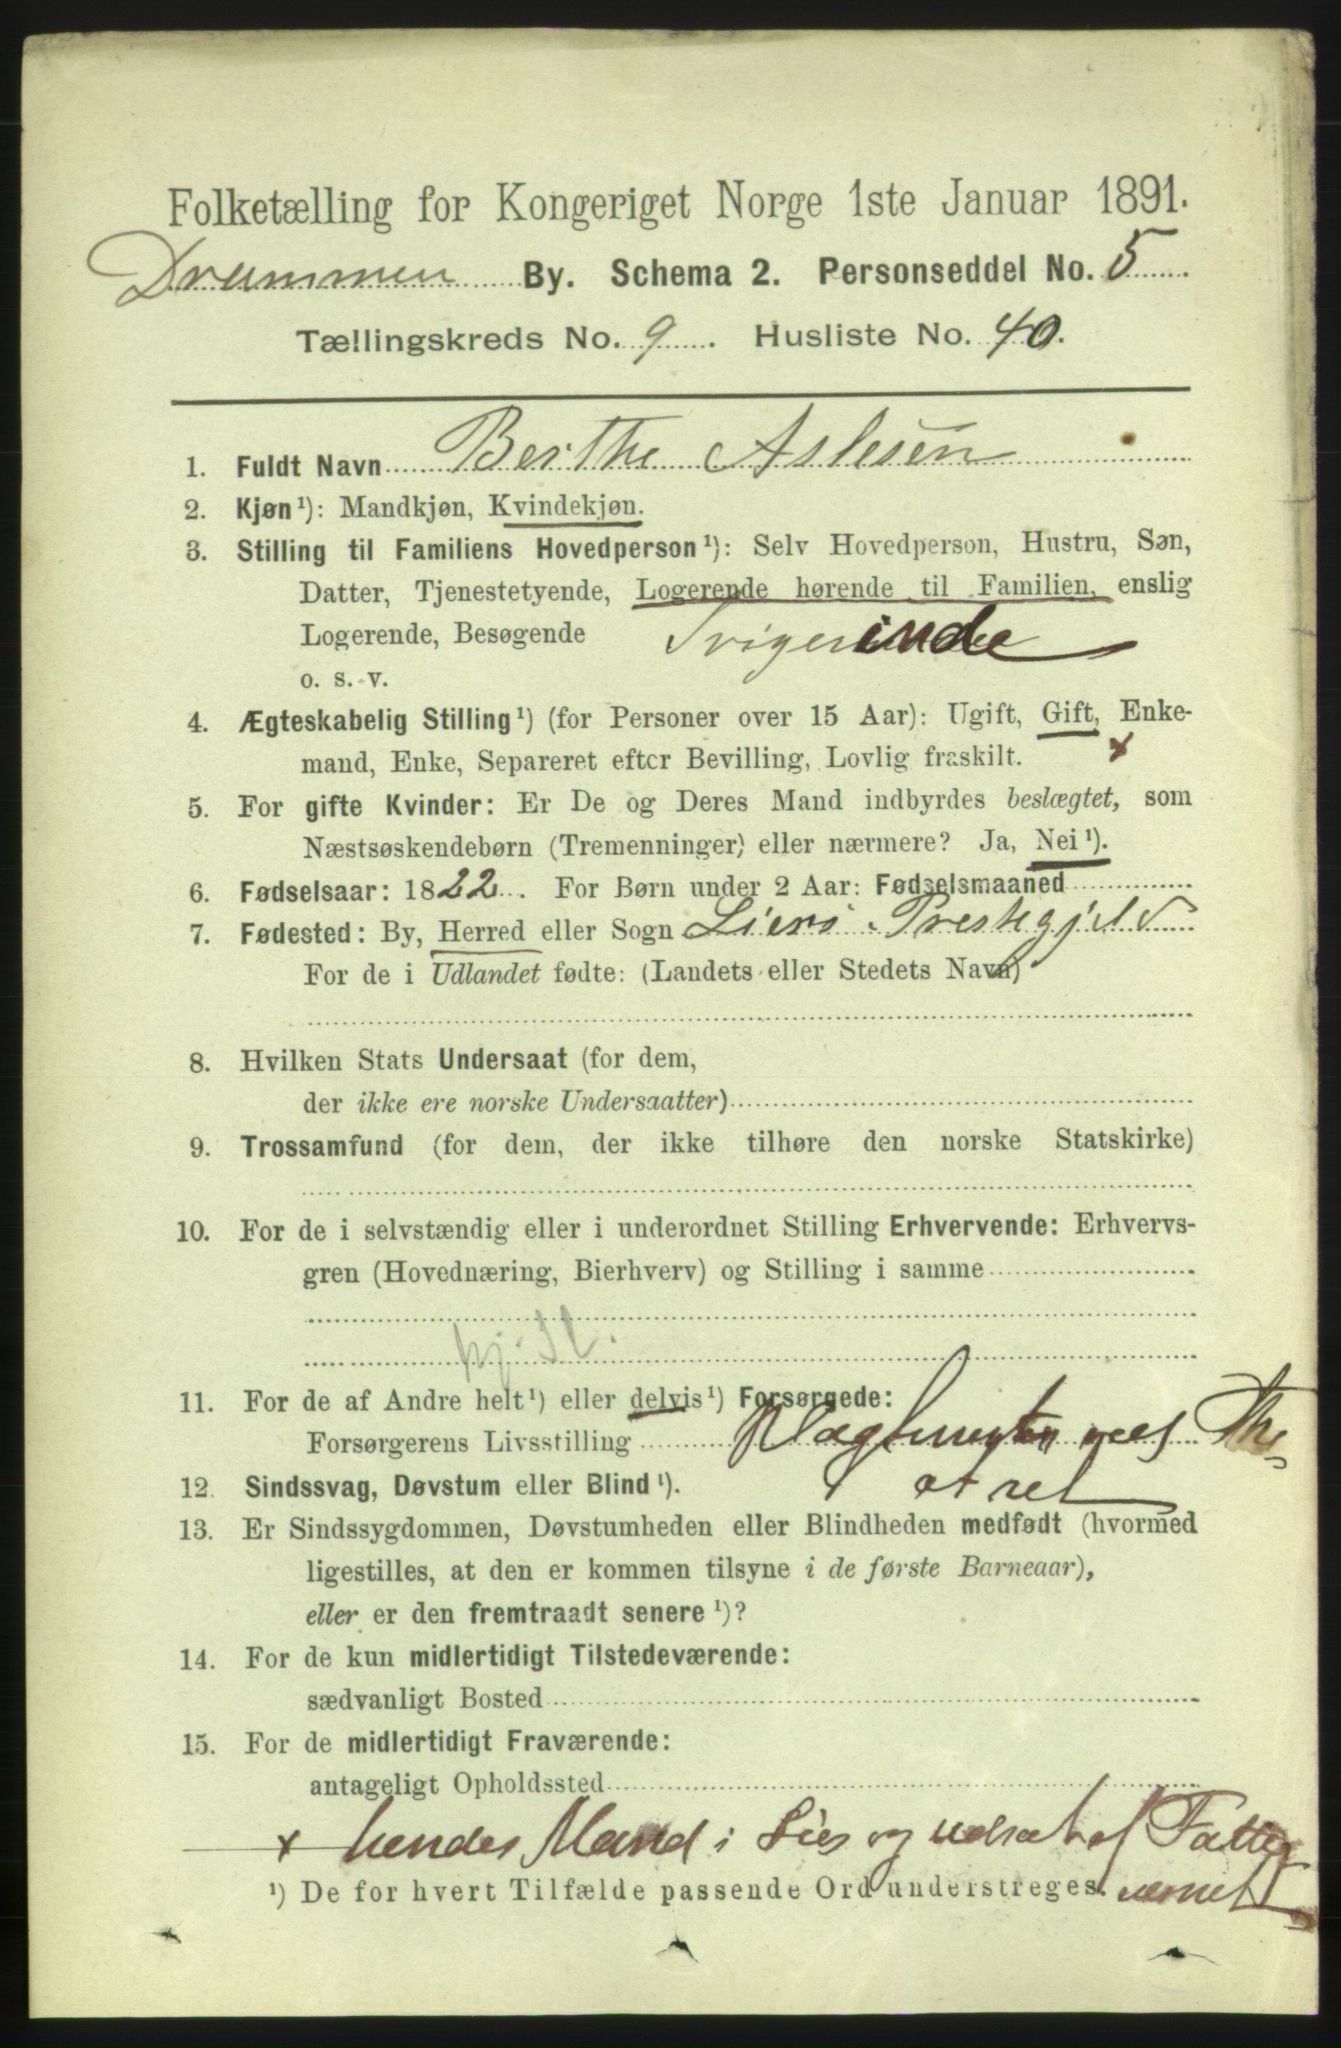 Folketælling for Kongeriget Norge 1ste Januar 1891.
Drammen By. Schema 2. Personseddel No. 5
Tællingskreds No. 9. Husliste No. 40.
1. Fuldt Navn Berthe Aslesen
2. Kjøn ¹): Mandkjøn, Kvindekjøn.
3. Stilling til Familiens Hovedperson ¹): Selv Hovedperson, Hustru, Søn,
Datter, Tjenestetyende, Logerende hørende til Familien, enslig
Logerende, Besøgende Svigerinde
o. s. v.
4. Ægteskabelig Stilling ¹) (for Personer over 15 Aar): Ugift, Gift, Enke-
mand, Enke, Separeret efter Bevilling, Lovlig fraskilt. x
5. For gifte Kvinder: Er De og Deres Mand indbyrdes beslægtet, som
Næstsøskendebørn (Tremenninger) eller nærmere? Ja, Nei ¹).
6. Fødselsaar: 1822. For Børn under 2 Aar: Fødselsmaaned
7. Fødested: By, Herred eller Sogn Liers Prestegjeld
For de i Udlandet fødte: (Landets eller Stedets Navn)
8. Hvilken Stats Undersaat (for dem,
der ikke ere norske Undersaatter)
9. Trossamfund (for dem, der ikke tilhøre den norske Statskirke)
10. For de i selvstændig eller i underordnet Stilling Erhvervende: Erhvervs-
gren (Hovednæring, Bierhverv) og Stilling i samme
11. For de af Andre helt ¹) eller delvis ¹) Forsørgede:
Forsørgerens Livsstilling Vagtmester ved The-
atret
12. Sindssvag, Døvstum eller Blind ¹).
13. Er Sindssygdommen, Døvstumheden eller Blindheden medfødt (hvormed
ligestilles, at den er kommen tilsyne i de første Barneaar),
eller er den fremtraadt senere ¹)?
14. For de kun midlertidigt Tilstedeværende:
sædvanligt Bosted
15. For de midlertidigt Fraværende:
antageligt Opholdssted
x hendes Mand i Lier og udsat af Fattig
væsnet
¹) De for hvert Tilfælde passende Ord understreges.